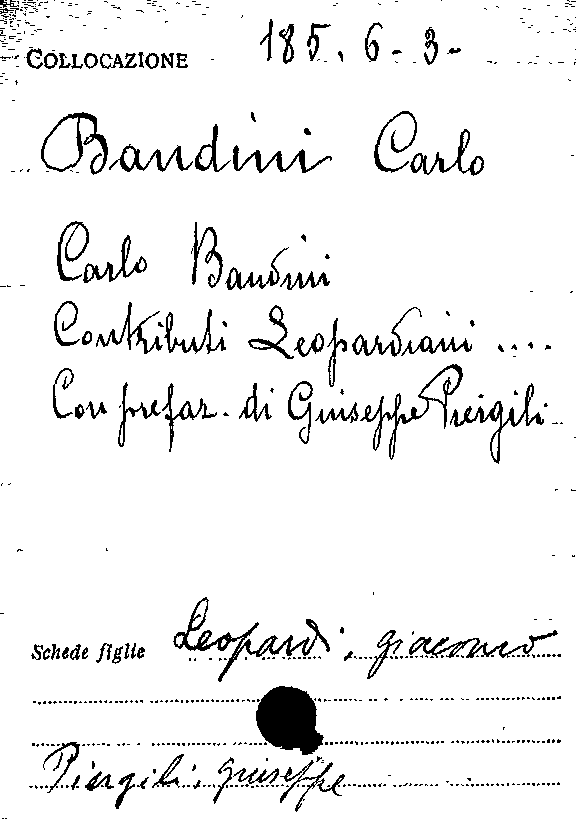 COLLOCAZIONE 185. 6-3-
Bandini Carlo
Carlo Bandini
Contributi Leopardiani ....
Con prefaz. di Giuseppe Piergili
Schede figlie Leopardi, Giacomo
Piergili, Giuseppe